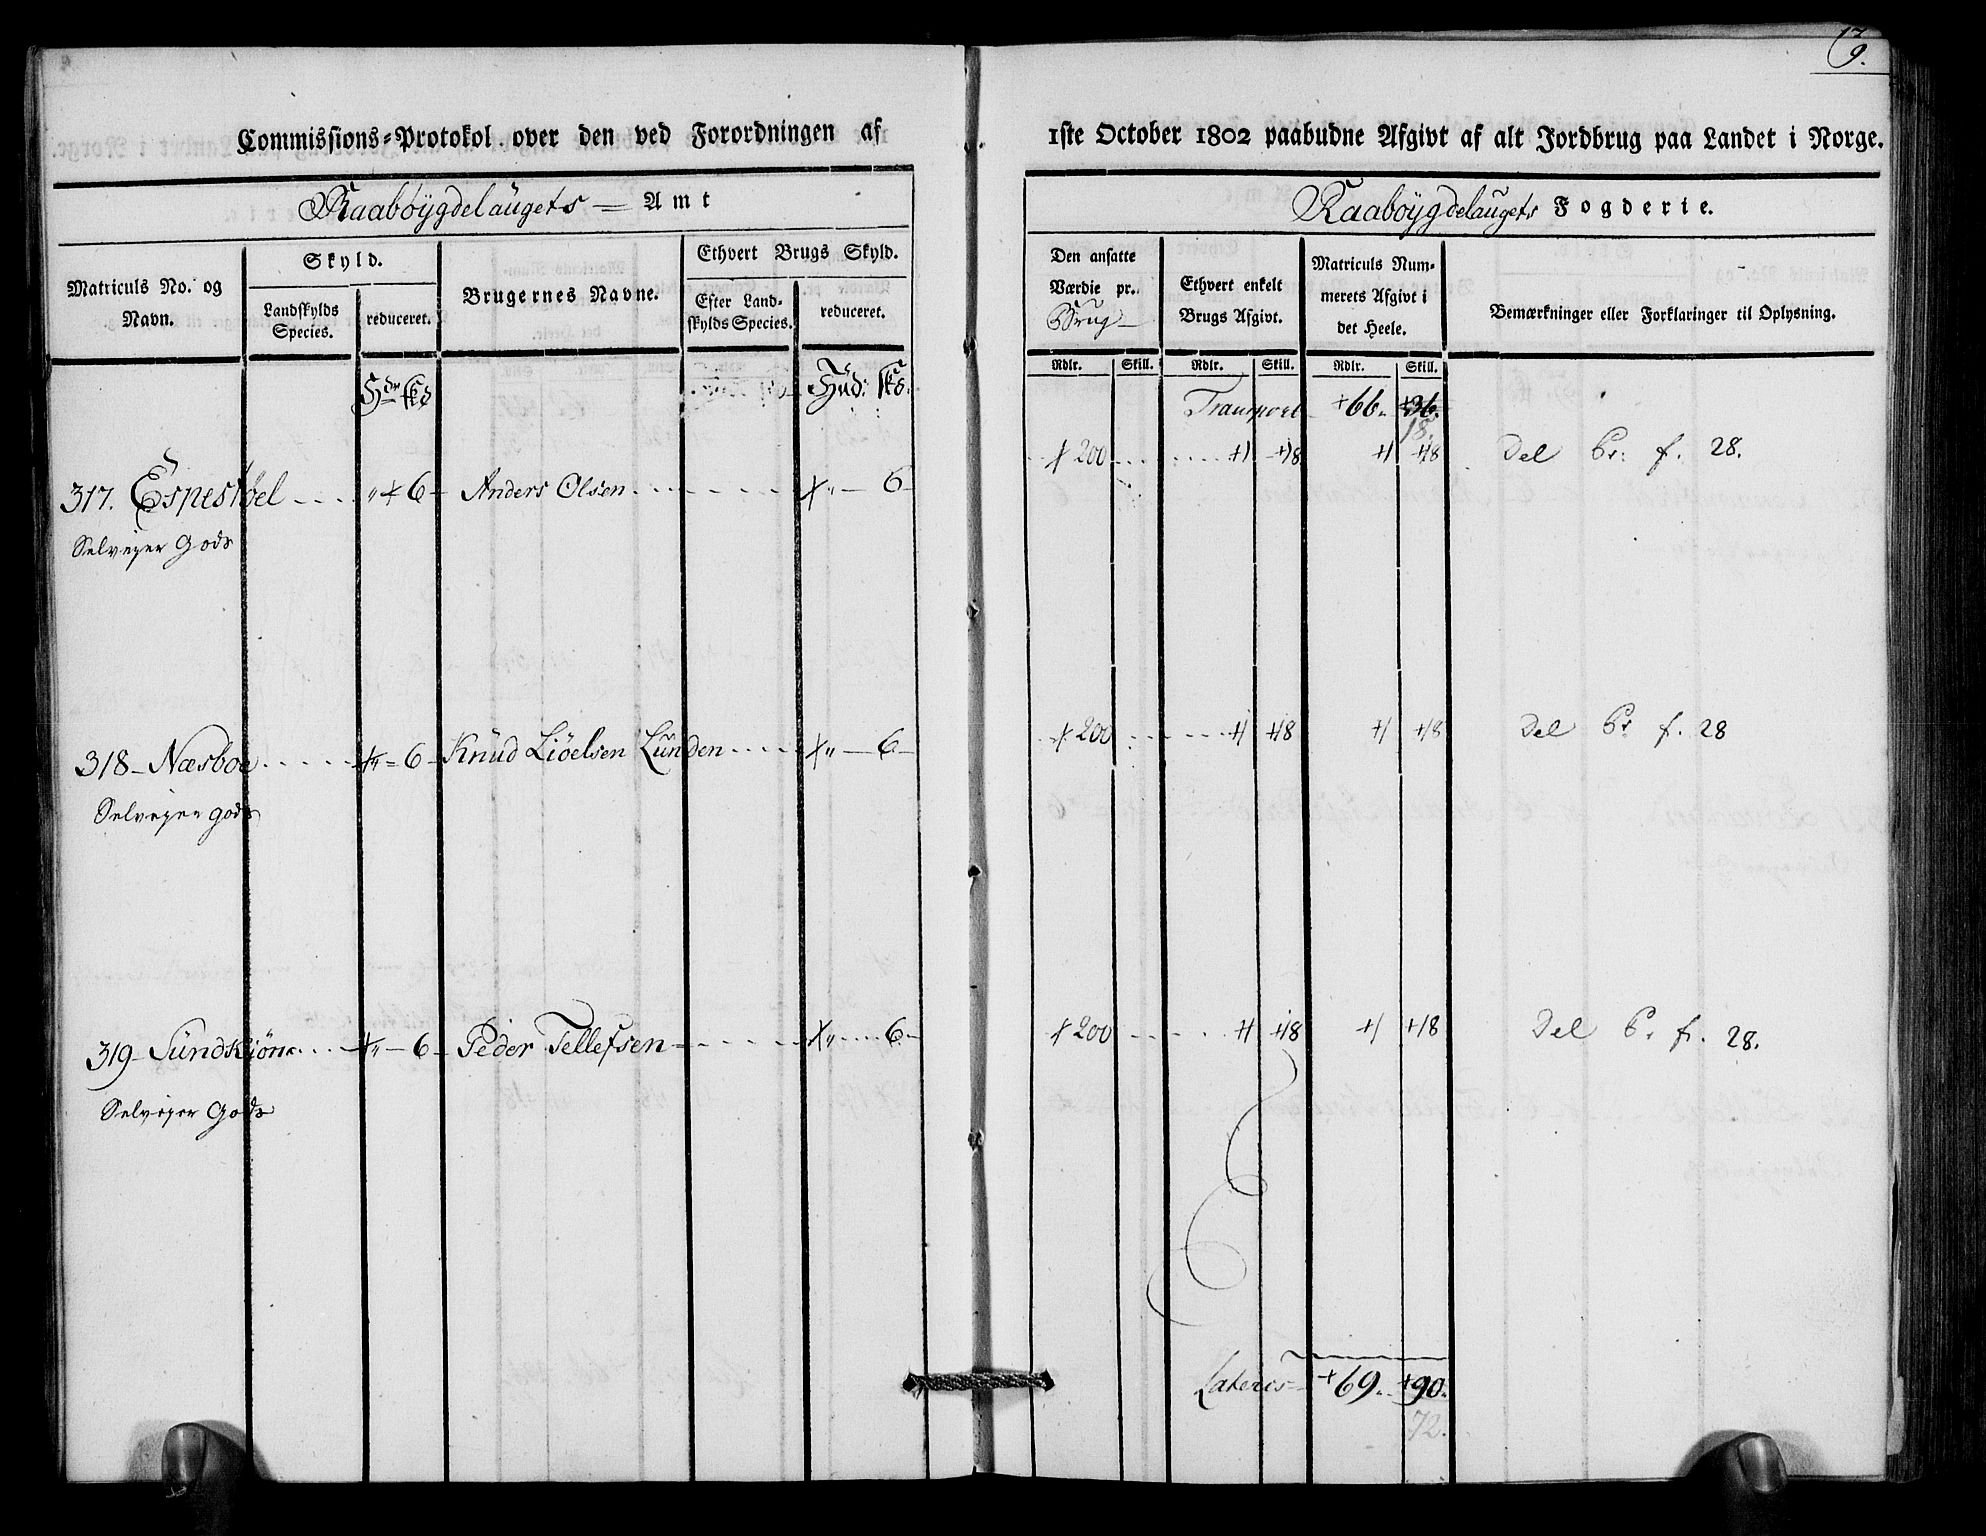 Commissions-Protokol over den ved Forordningen af
Raabøÿgdelaugets Amt
Matriculs No. og Navn.
Skyld.
Landskylds Species.
reduceret.
Brugernes Navne.
Ethvert Brugs Skyld.
Efter Landskylds Species.
reduceret.
Hdr skd
Hud: skd:
317. Espestøl .... " + 6 - Anders Olsen ........ + " - 6 -
Selveyer Gods
318 - Næsboe ..... + " = 6 - Knud Liöelsen Lunden ..... + " - 6 -
Selveyer gods
319 - Sundkiøn .... + " - 6 - Peder Tellefsen ....... + " .... 6 -
Selveyer Gods
9.
1ste October 1802 paabudne Afgivt af alt Jordbrug paa Landet i Norge.
Raabøÿgdelaugets Fogderie.
Den ansatte Værdie pr. Brug
Ethvert enkelt Brugs Afgivt.
Matriculs Nummerets Afgivt i det Heele.
Bemærkninger eller Forklaringer til Oplysning.
Rdlr. Skill. Rdlr. Skill. Rdlr. Skill.
Transport +66. +36.
18.
+ 200 .... +1 +18 +1 +18 Del Pr. f. 28.
+ 200 .... +1 +18 +1 +18 Del Pr f. 28
+ 200 .... +1 +18 +1 +18 Del Pr f. 28.
Lateris +69. +90.
72.